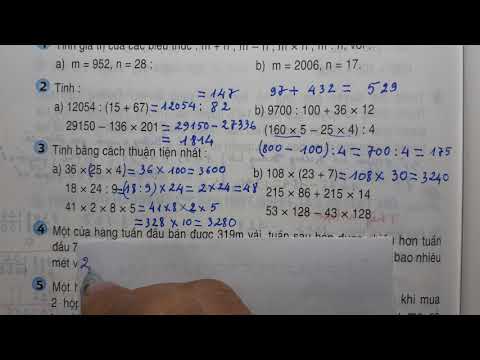 Tính giá trị của các biểu thức : m + n ; m – n ; m × n ; m : n, với :
a) m = 952, n = 28 ; b) m = 2006, n = 17.
2 Tính : = 147 97 + 432 = 529
a) 12054 : (15 + 67) = 12054 : 82 b) 9700 : 100 + 36 × 12
29150 – 136 × 201 = 29150 - 27336 (160 × 5 – 25 × 4) : 4
= 1814 (800 - 100) : 4 = 700 : 4 = 175
3 Tính bằng cách thuận tiện nhất :
a) 36 × (25 × 4) = 36 × 100 = 3600 b) 108 × (23 + 7) = 108 × 30 = 3240
18 × 24 : 9 = (18 : 9) × 24 = 2 × 24 = 48 215 × 86 + 215 × 14
41 × 2 × 8 × 5 = 41 × 8 × 2 × 5 53 × 128 – 43 × 128
= 328 × 10 = 3280
4 Một cửa hàng tuần đầu bán được 319m vải, tuần sau bán được hơn tuần
đầu 7
mét v 2 bao nhiêu
5 Một h khi mua
2 hộp